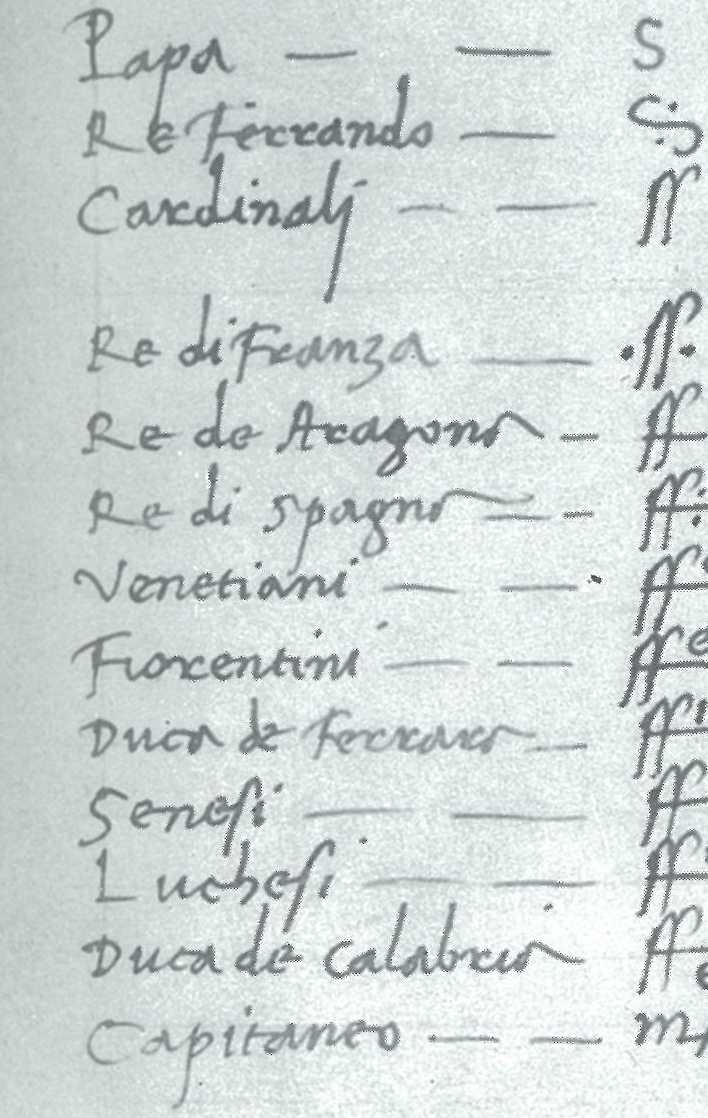 Papa — — S
Re Ferrando —
Cardinalj — — ſſ
Re di Franza — .ſſ.
Re de Aragona — ff
Re di Spagna — — ff:
Venetiani — — ff
Fiorentini — — ff e
Duca de Ferrara — ff
Seneſi — — ff
Lucheſi — — ff
Duca de Calabria ff e
Capitaneo — — m